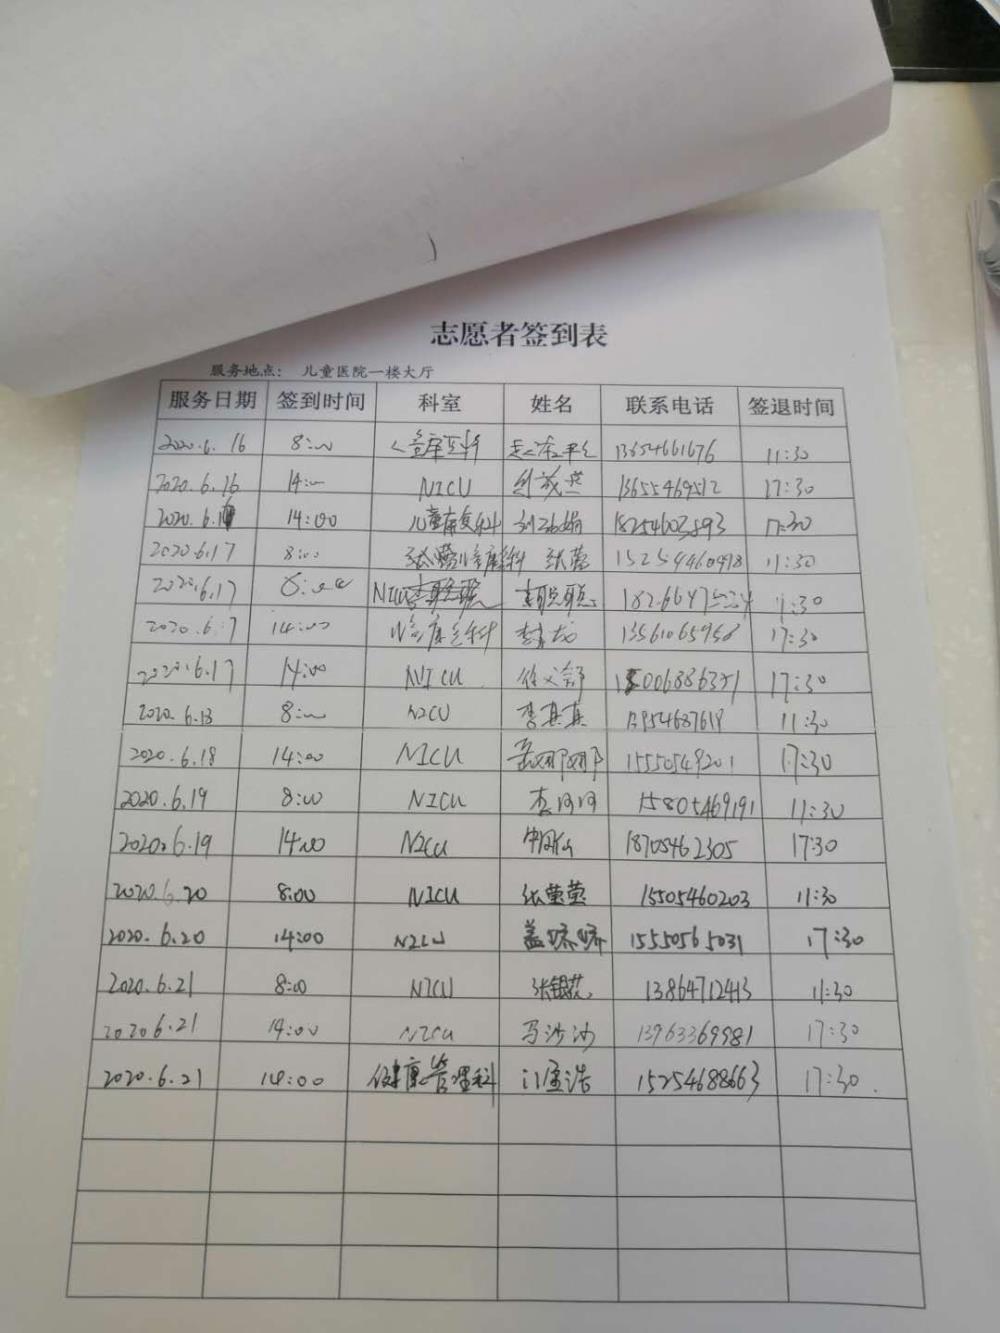 志愿者签到表
服务地点： 儿童医院一楼大厅
服务日期 签到时间 科室 姓名 联系电话 签退时间
2020.6.16 8:00 13654661676 11:30
2020.6.16 14:00 NICU 13655469512 17:30
2020.6.16 14:00 儿童康复科 18254603593 17:30
2020.6.17 8:00 张营 15254460998 11:30
2020.6.17 8:00 NICU 11:30
2020.6.17 14:00 13561065958 17:30
2020.6.17 14:00 NICU 17:30
2020.6.18 8:00 NICU 李真真 11:30
2020.6.18 14:00 NICU 岳娜娜 15550549201 17:30
2020.6.19 8:00 NICU 李河河 15805469191 11:30
2020.6.19 14:00 NICU 18705462305 17:30
2020.6.20 8:00 NICU 张莹莹 15505460203 11:30
2020.6.20 14:00 NICU 盖娇娇 15550565031 17:30
2020.6.21 8:00 NICU 张银花 13864712413 11:30
2020 6.21 14:00 NICU 马沙沙 13963369981 17:30
2020.6.21 14:00 健康管理科 15254688663 17:30.